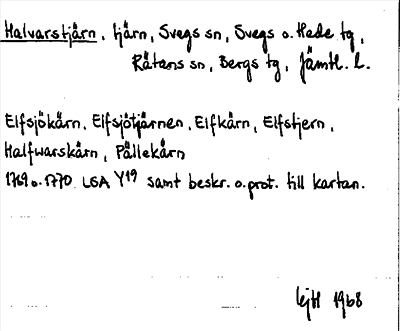 Halvarstjärn, tjärn, Svegs sn, Svegs o. Hede tg,
Rätans sn, Bergs tg, Jämtl. L.
Elfsjökärn, Elfsjötjärnen, Elfkärn, Elfstjern,
Halfwarskärn, Pällekärn
1769 o. 1770 LSA Y19 samt beskr. o. prot. till kartan.
1968